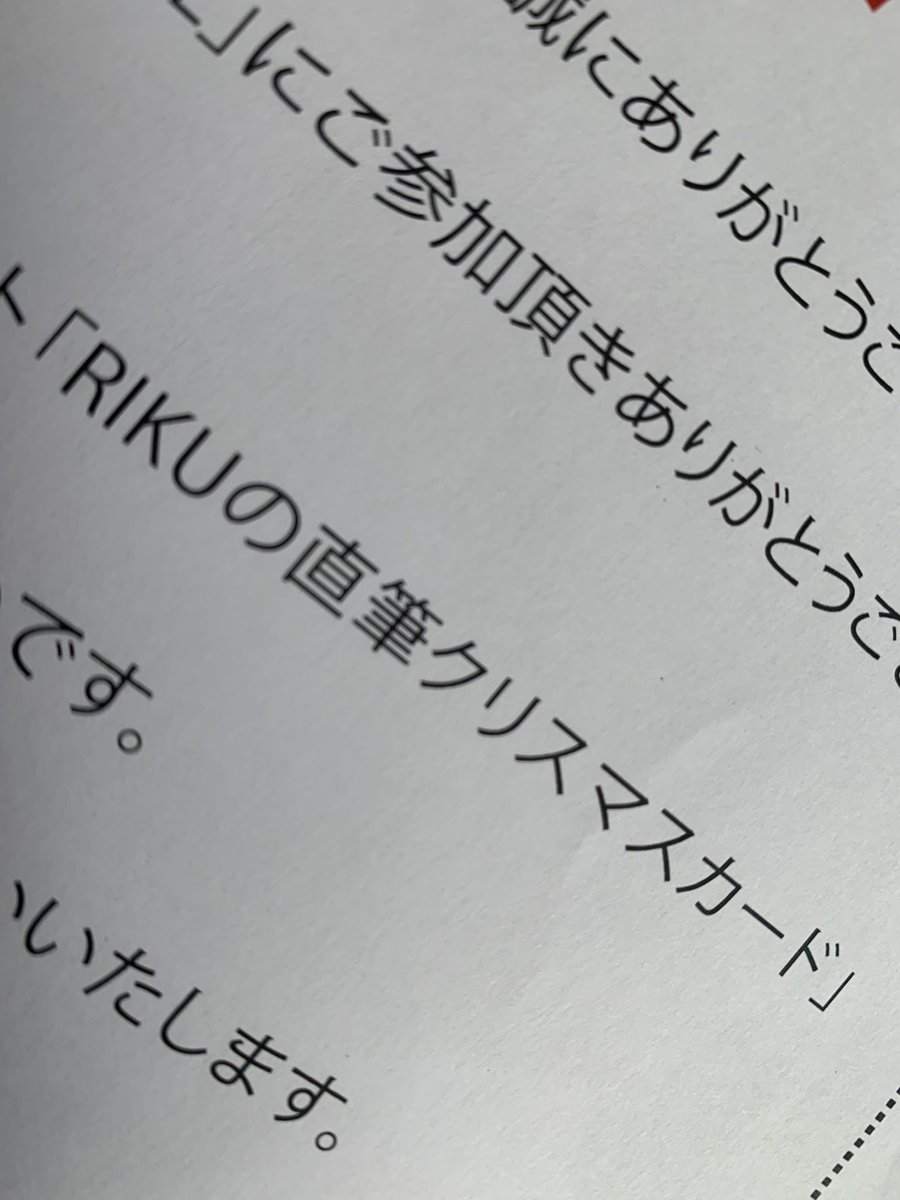 誠にありがとうご
」にご参加頂きありがとうご
ト「RIKUの直筆クリスマスカード」
です。
いたします。